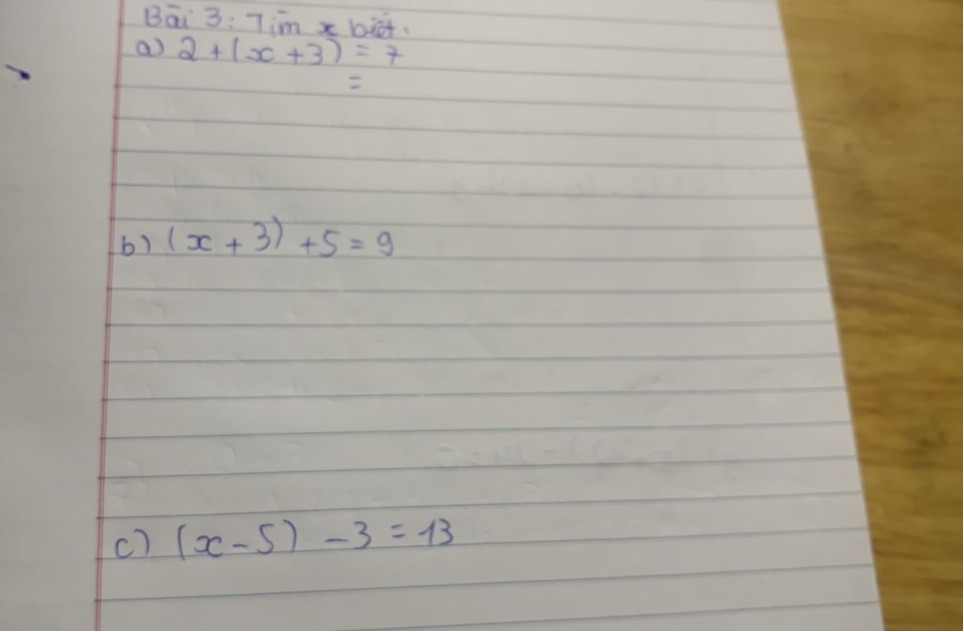 Bài 3: Tìm x biết.
a) 2 + (x + 3) = 7
=
b) (x + 3) + 5 = 9
c) (x - 5) - 3 = 13